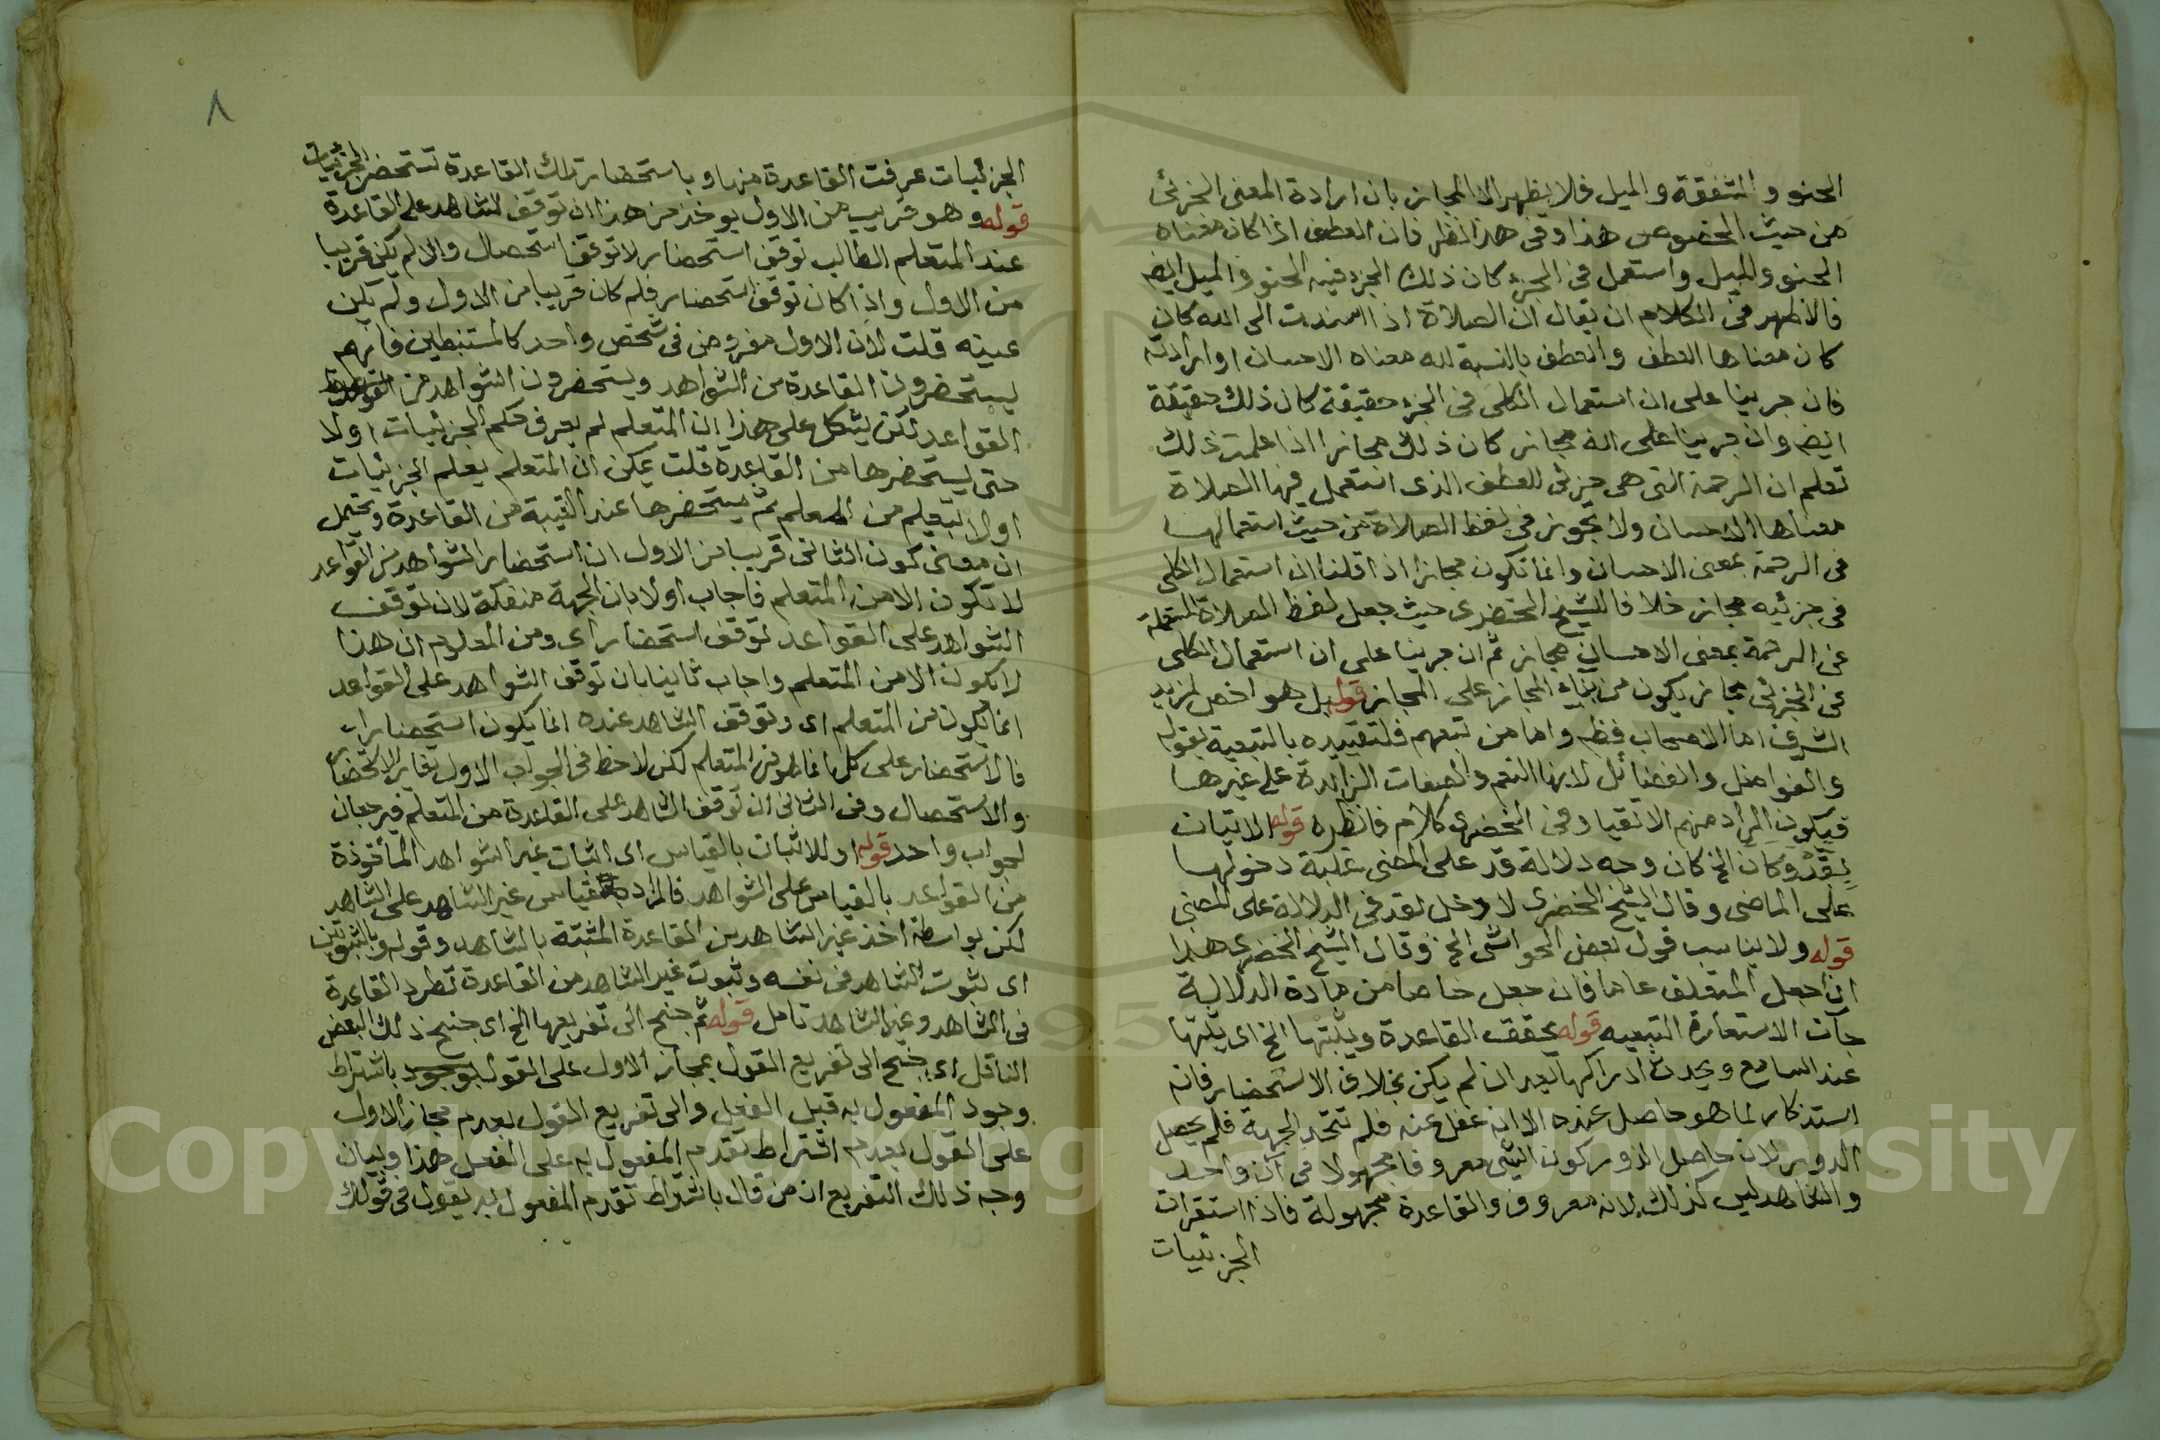 الحنو والشفقة والميل فلا يظهر الا المجاز بان ارادة المعنى الجزئى
من حيث الخصوص هذا وفى هذا نظر فان العطف اذا كان معناه
الحنو والميل واستعمل فى الجزء كان ذلك الجزء فيه الحنو والميل ايضا
فالاظهر فى الكلام ان يقال ان الصلاة اذا اسندت الى الله كان
كان معناها العطف والعطف بالنسبة لله معناه الاحسان او ارادته
فان جرينا على ان استعمال الكلى فى الجزء حقيقة كان ذلك حقيقة
ايضا وان جرينا على انه مجاز كان ذلك مجازا اذا علمت ذلك
تعلم ان الرحمة التى هى جزئى للعطف الذى استعمل فيها الصلاة
معناها الاحسان ولا تجوز فى لفظ الصلاة من حيث استعمالها
فى الرحمة بمعنى الاحسان وانما تكون مجازا اذا قلنا ان استعمال الكلى
فى جزئيه مجاز خلافا للشيخ الخضرى حيث جعل لفظ الصلاة المستعملة
فى الرحمة بمعنى الاحسان مجاز ثم ان جرينا على ان استعمال الكلى
فى الجزئى مجاز يكون من بناء المجاز على المجاز قوله بل هو اخص لمزيد
الشرف اما الاصحاب فظم واما من تبعهم فلتقييده بالتبعية بقوله
والفواضل والفضائل لانها النعم والصفات الزائدة على غيرها
فيكون المراد منهم الاتقيا وفى الخضرى كلام فانظره قوله الاتيان
بقد وكان الخ كان وجه دلالة قد على المضى غلبة دخولها
على الماضى وقال الشيخ الخضرى لا دخل لقد فى الدلالة على المضى
قوله ولا يناسب قول بعض الحواشى الخ وقال الشيخ الخضرى هذا
ان جعل المتعلق عاما فان جعل خاصا من مادة الدلالة
جات الاستعارة التبعيه قوله تحقق القاعدة ويثبتها الخ اى يثبتها
عند السامع ويحدث ادراكها بعد ان لم يكن بخلاف الاستحضار فانه
استذكار لما هو حاصل عنده الا انه غفل عنه فلم تتحد الجهة فلم يحصل
الدور لان حاصل الدور كون الشى معروفا مجهولا فى آن واحد
والشاهد ليس كذلك لانه معروف والقاعدة مجهولة فاذا استقرات
الجزئيات
٨
الجزئيات عرفت القاعدة منها وباستحضار تلك القاعدة تستحضر الجزئيات
قوله وهو قريب من الاول يوخذ من هذا ان توقف الشاهد على القاعدة
عند المتعلم الطالب توقف استحضار لا توقف استحصال والا لم يكن قريبا
من الاول واذا كان توقف استحضار فلم كان قريبا من الاول ولم يكن
عينه قلت لان الاول مفروض فى شخص واحد كالمستنبطين فانهم
يستحضرون القاعدة من الشواهد ويستحضرون الشواهد من
القواعد لكن يشكل على هذا ان المتعلم لم يعرف حكم الجزئيات اولا
حتى يستحضرها من القاعدة قلت يمكن ان المتعلم يعلم الجزئيات
اولا بتعليم من المعلم ثم يستحضرها عند الغيبة من القاعدة ويحتمل
ان معنى كون الثانى قريبا من الاول ان استحضار الشواهد من القواعد
لا تكون الا من المتعلم فاجاب اولا بان الجهة منفكة لان توقف
الشواهد على القواعد توقف استحضار اى ومن المعلوم ان هذا
لا يكون الا من المتعلم واجاب ثانيا بان توقف الشواهد على القواعد
انما يكون من المتعلم اى وتوقف الشاهد عنده انما يكون استحضارا
فالاستحضار على كل انما هو من المتعلم لكن لاحظ فى الجواب الاول تغاير الاستحضار
والاستحصال وفى الثانى ان توقف الشاهد على القاعدة من المتعلم فيرجعان
لجواب واحد قوله او للاثبات بالقياس اى اثبات غير الشواهد المأخوذة
من القواعد بالقياس على الشواهد فالمراد قياس غير الشاهد على الشاهد
لكن بواسطة اخذ غير الشاهد من القاعدة المثبتة بالشاهد وقوله وبالثبوتين
اى ثبوت الشاهد فى نفسه وثبوت غير الشاهد من القاعدة تطرد القاعدة
فى الشاهد وغير الشاهد تامل قوله ثم جنح الى تفريعها الخ اى جنح ذلك البعض
الناقل اى جنح الى تفريع القول بمجاز الاول على القول بوجود باشتراط
وجود المفعول به قبل الفعل والى تفريع القول بعدم مجاز الاول
على القول بعدم اشتراط تقدم المفعول به على الفعل هذا وبيان
وجه ذلك التفريع ان من قال باشتراط تقدم المفعول به يقول فى قولك
Copyright © King Saud University